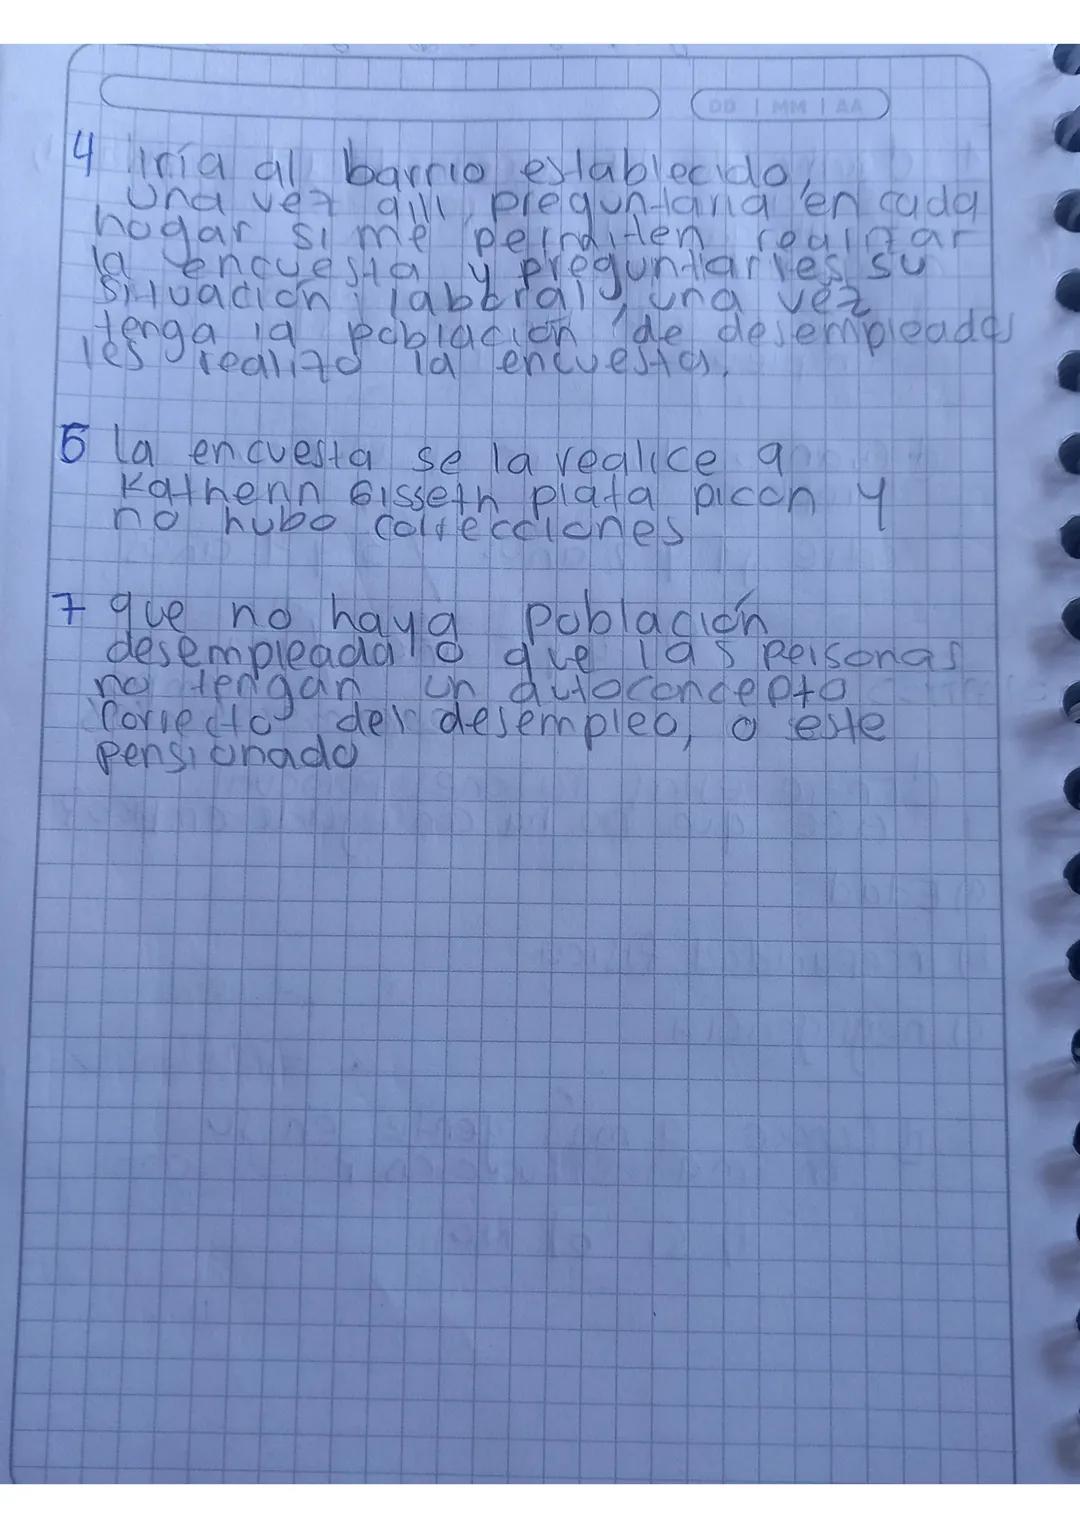 DD | MM | AA
4 iría al barrio establecido,
una vez alli, preguntaria en cada
hogar si me permiten realizar
la encuesta y preguntarles su
situación laboral, una vez
tenga la población de desempleados
les realizo la encuesta.
6 la encuesta se la realice a
Katherin Gisseth plata picon y
no hubo correcciones
7 que no haya población
desempleada o que las personas
no tengan un autoconcepto
correcto del desempleo, o este
pensionado